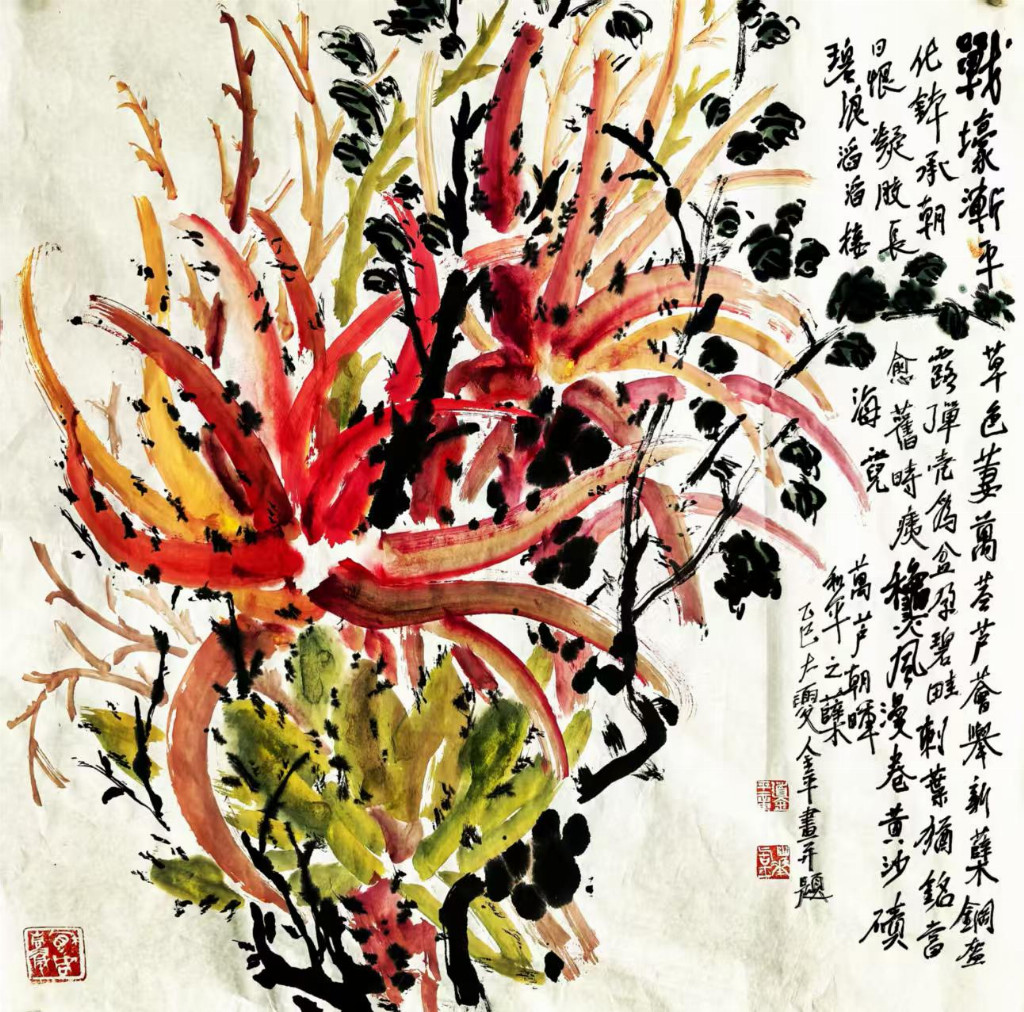 戰壕漸平草色萋萬茎芦薈舉新蘖鋼盔
化鉢承朝露彈壳為盆孕碧畦刺葉猶銘當
日恨凝胶長愈舊時痍风漫卷黄沙磧
碧浪滔滔接海霓
萬芦朝暉
和平之蘖
乙巳大雪金平畫并題